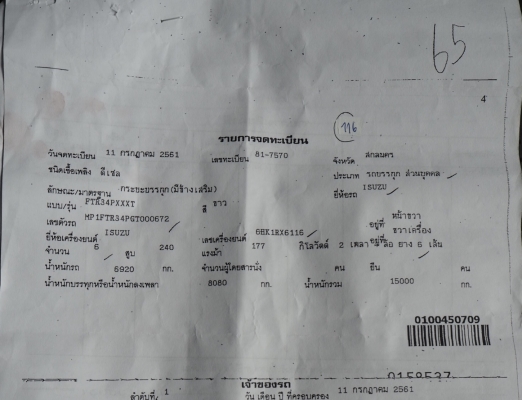 65
4
116
รายการจดทะเบียน
วันจดทะเบียน 11 กรกฎาคม 2561 เลขทะเบียน 81-7570 จังหวัด สกลนคร
ชนิดเชื้อเพลิง ดีเซล ประเภท รถบรรทุก ส่วนบุคคล
ลักษณะ/มาตรฐาน กระบะบรรทุก(มีข้างเสริม) ยี่ห้อรถ ISUZU
แบบ/รุ่น FTR34PXXXT สี ขาว
เลขตัวรถ MP1FTR34PGT000672 อยู่ที่ หน้าขวา
ยี่ห้อเครื่องยนต์ ISUZU เลขเครื่องยนต์ 6BK1RX6116 อยู่ที่ ขวาเครื่อง
จำนวน 6 สูบ 240 แรงม้า 177 กิโลวัตต์ 2 เพลา ล้อ ยาง 6 เส้น
น้ำหนักรถ 6920 กก. จำนวนผู้โดยสารนั่ง คน ยืน คน
น้ำหนักบรรทุกหรือน้ำหนักลงเพลา 8080 กก. น้ำหนักรวม 15000 กก.
0100450709
เจ้าของรถ
ลำดับที่ 1 วัน เดือน ปี ที่ครอบครอง 11 กรกฎาคม 2561